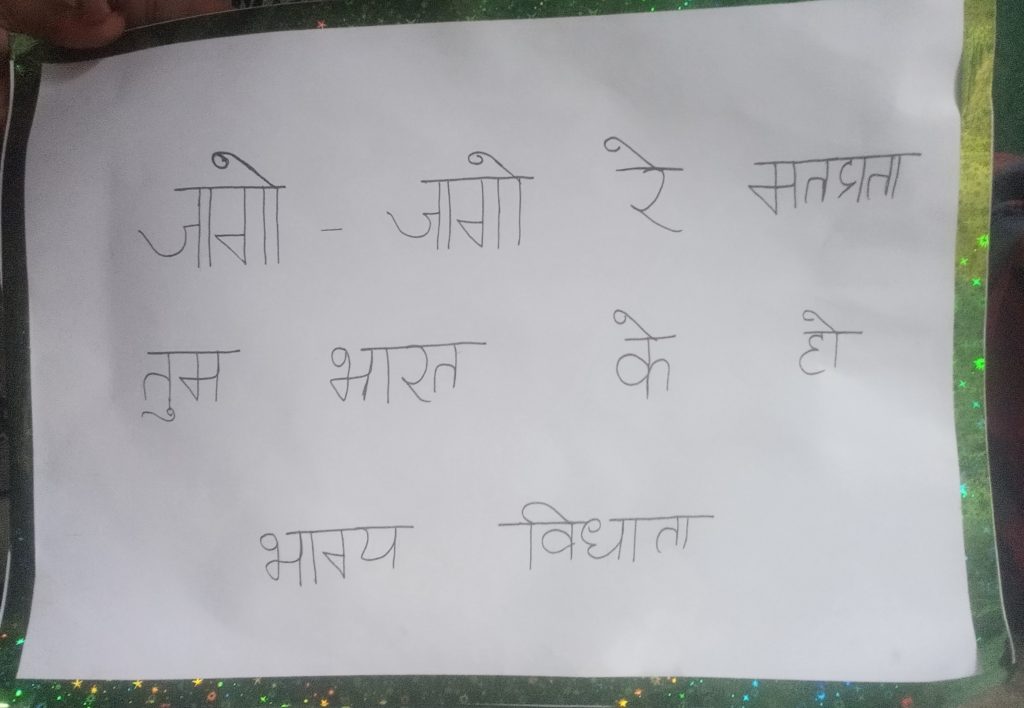 जागो - जागो रे मतदाता
तुम भारत के हो
भाग्य विधाता